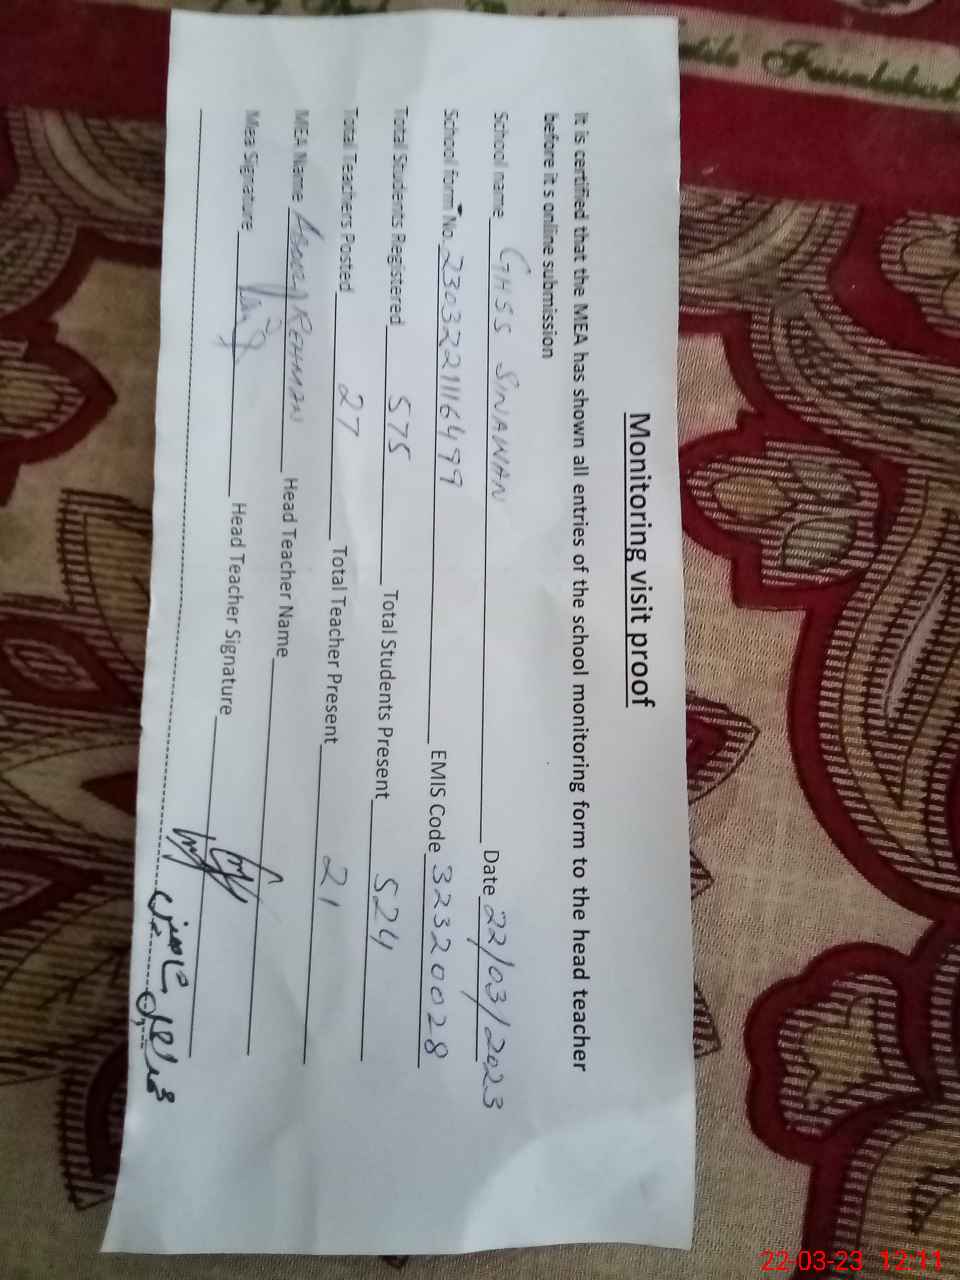 Monitoring visit proof
It is certified that the MEA has shown all entries of the school monitoring form to the head teacher
before it s online submission
School name GHSS SINAWAN Date 22/03/2023
School form No. 2303221116499 EMIS Code 32320028
Total Students Registered 575 Total Students Present 524
Total Teachers Posted 27 Total Teacher Present 21
MEA Name REHMAN Head Teacher Name
Mea Signature Head Teacher Signature
Faisalabad
22-03-23 12:11